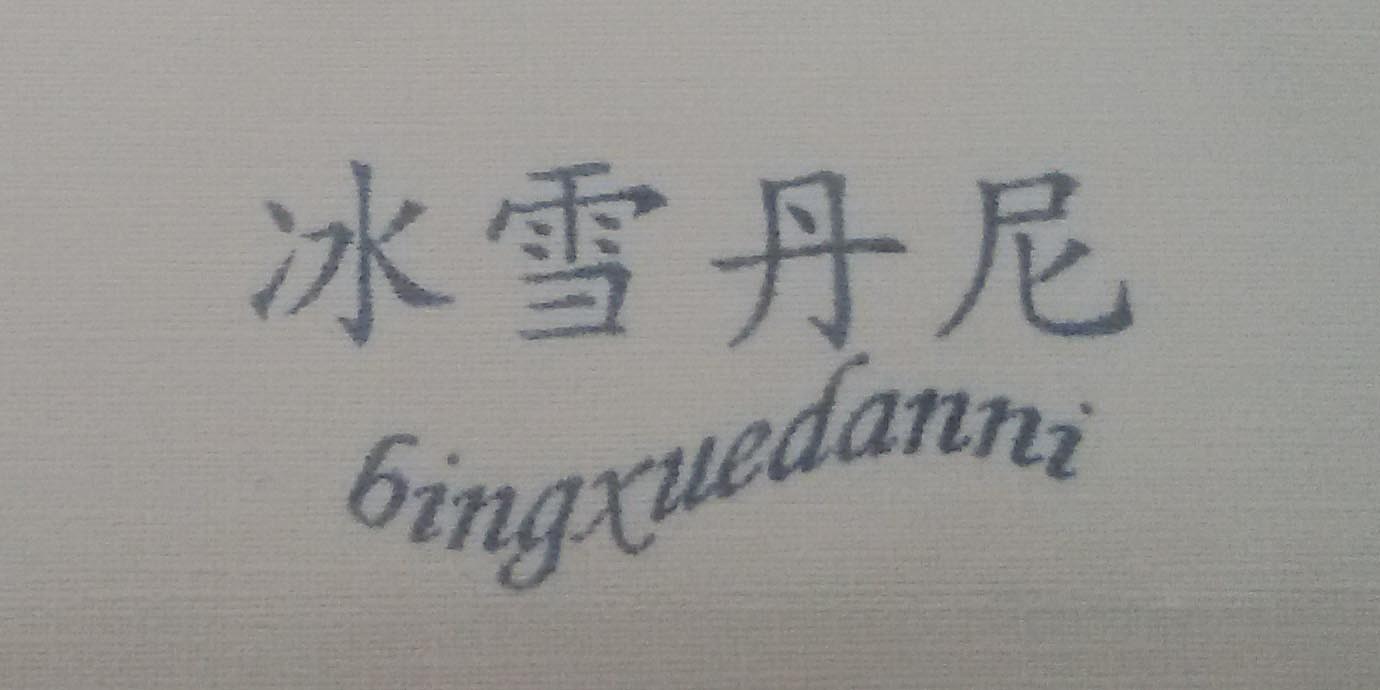 冰雪丹尼
bingxuedanni